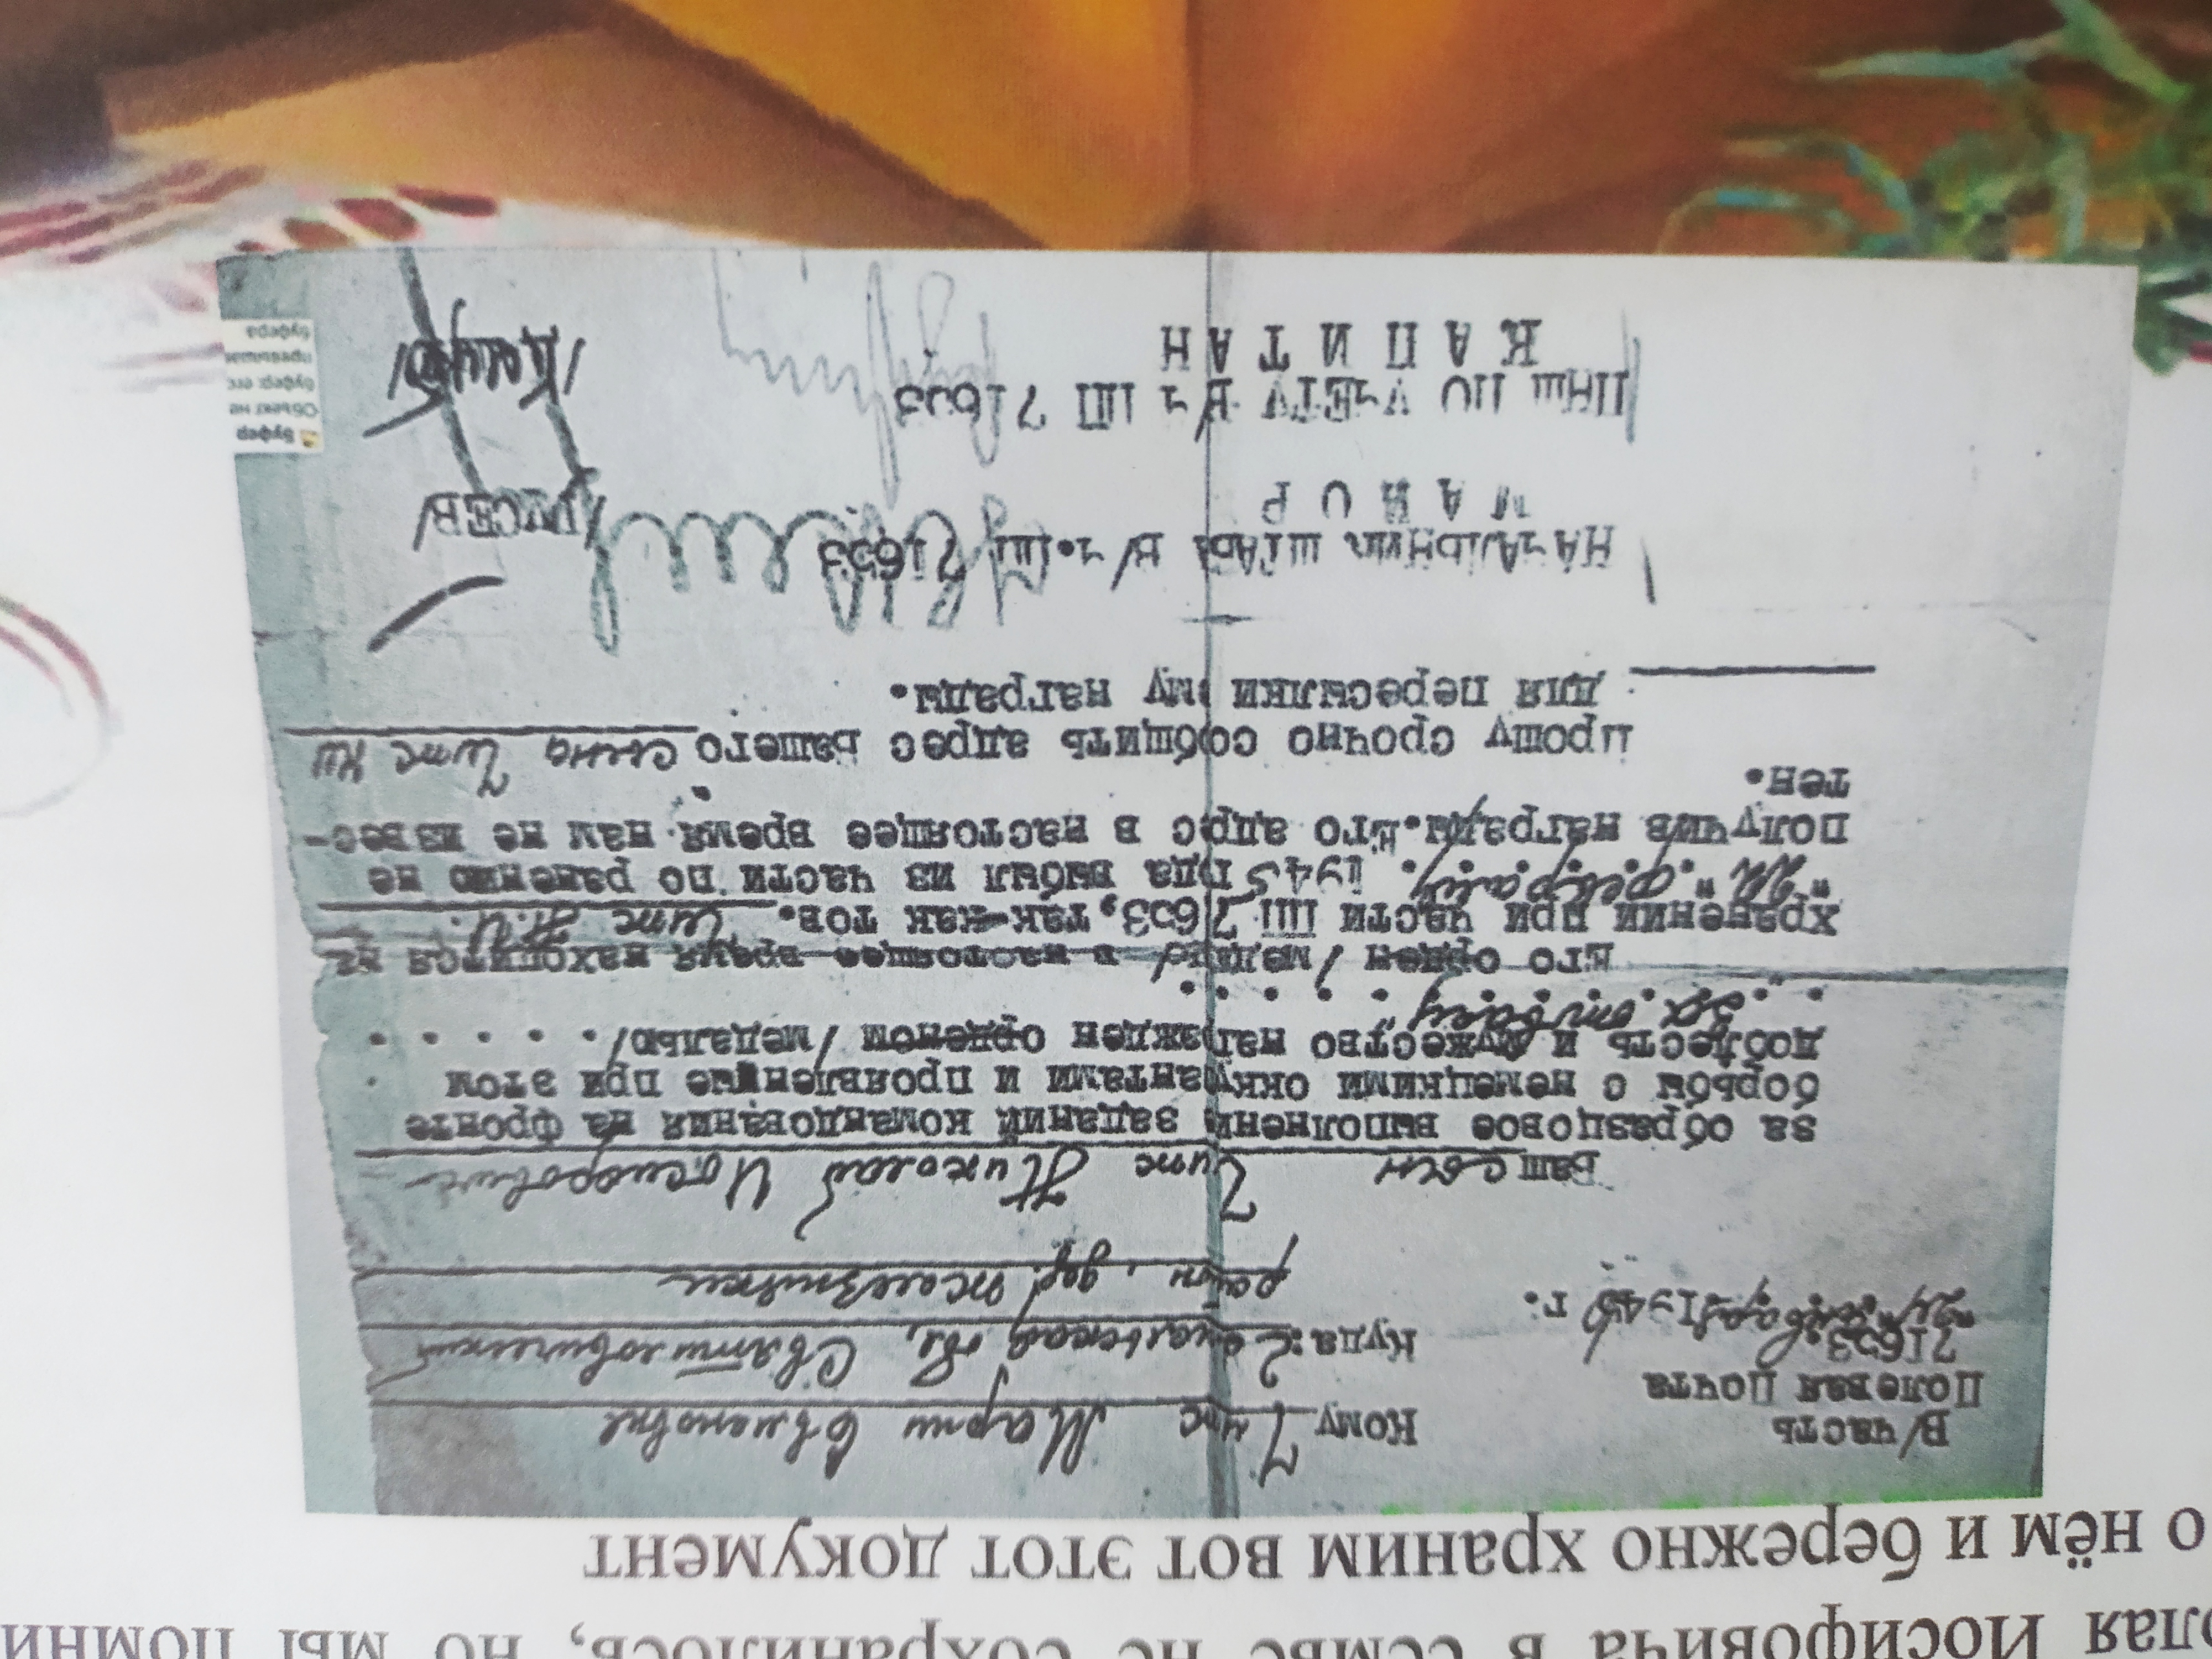 Иосифовича в семье не сохранилось, но мы помни
о нём и бережно храним вот этот документ
В/часть
Полевая Почта
71653.
"24" января 1945 г.
Кому Чиж Марии
Куда: обл.,
район, дер.
Ваш сын Чиж Николай Иосифович
за образцовое выполнени заданий командования на фронте
борьбы с немецкими оккупантами и проявленные при этом
доблесть и мужество награжден орденом /медалью/. . . . . .
"За отвагу" . . . . .
Его орден /медаль/ в настоящее время находится на
хранении при части ПП 71653, так-как тов. Чиж Н.И.
февраля 1945 года выбыл из части по ранению не
получив награды. Его адрес в настоящее время нам не извес-
тен.
Прошу срочно сообщить адрес Вашего сына Чиж Ни
для пересылки ему награды.
НАЧАЛЬНИК ШТАБА В/ч.ПП 71653
МАЙОР /ГУСЕВ/
ПНШ ПО УЧЕТУ В/ч ПП 71653
КАПИТАН
Буфер
Объект не
буфер: его
буфера